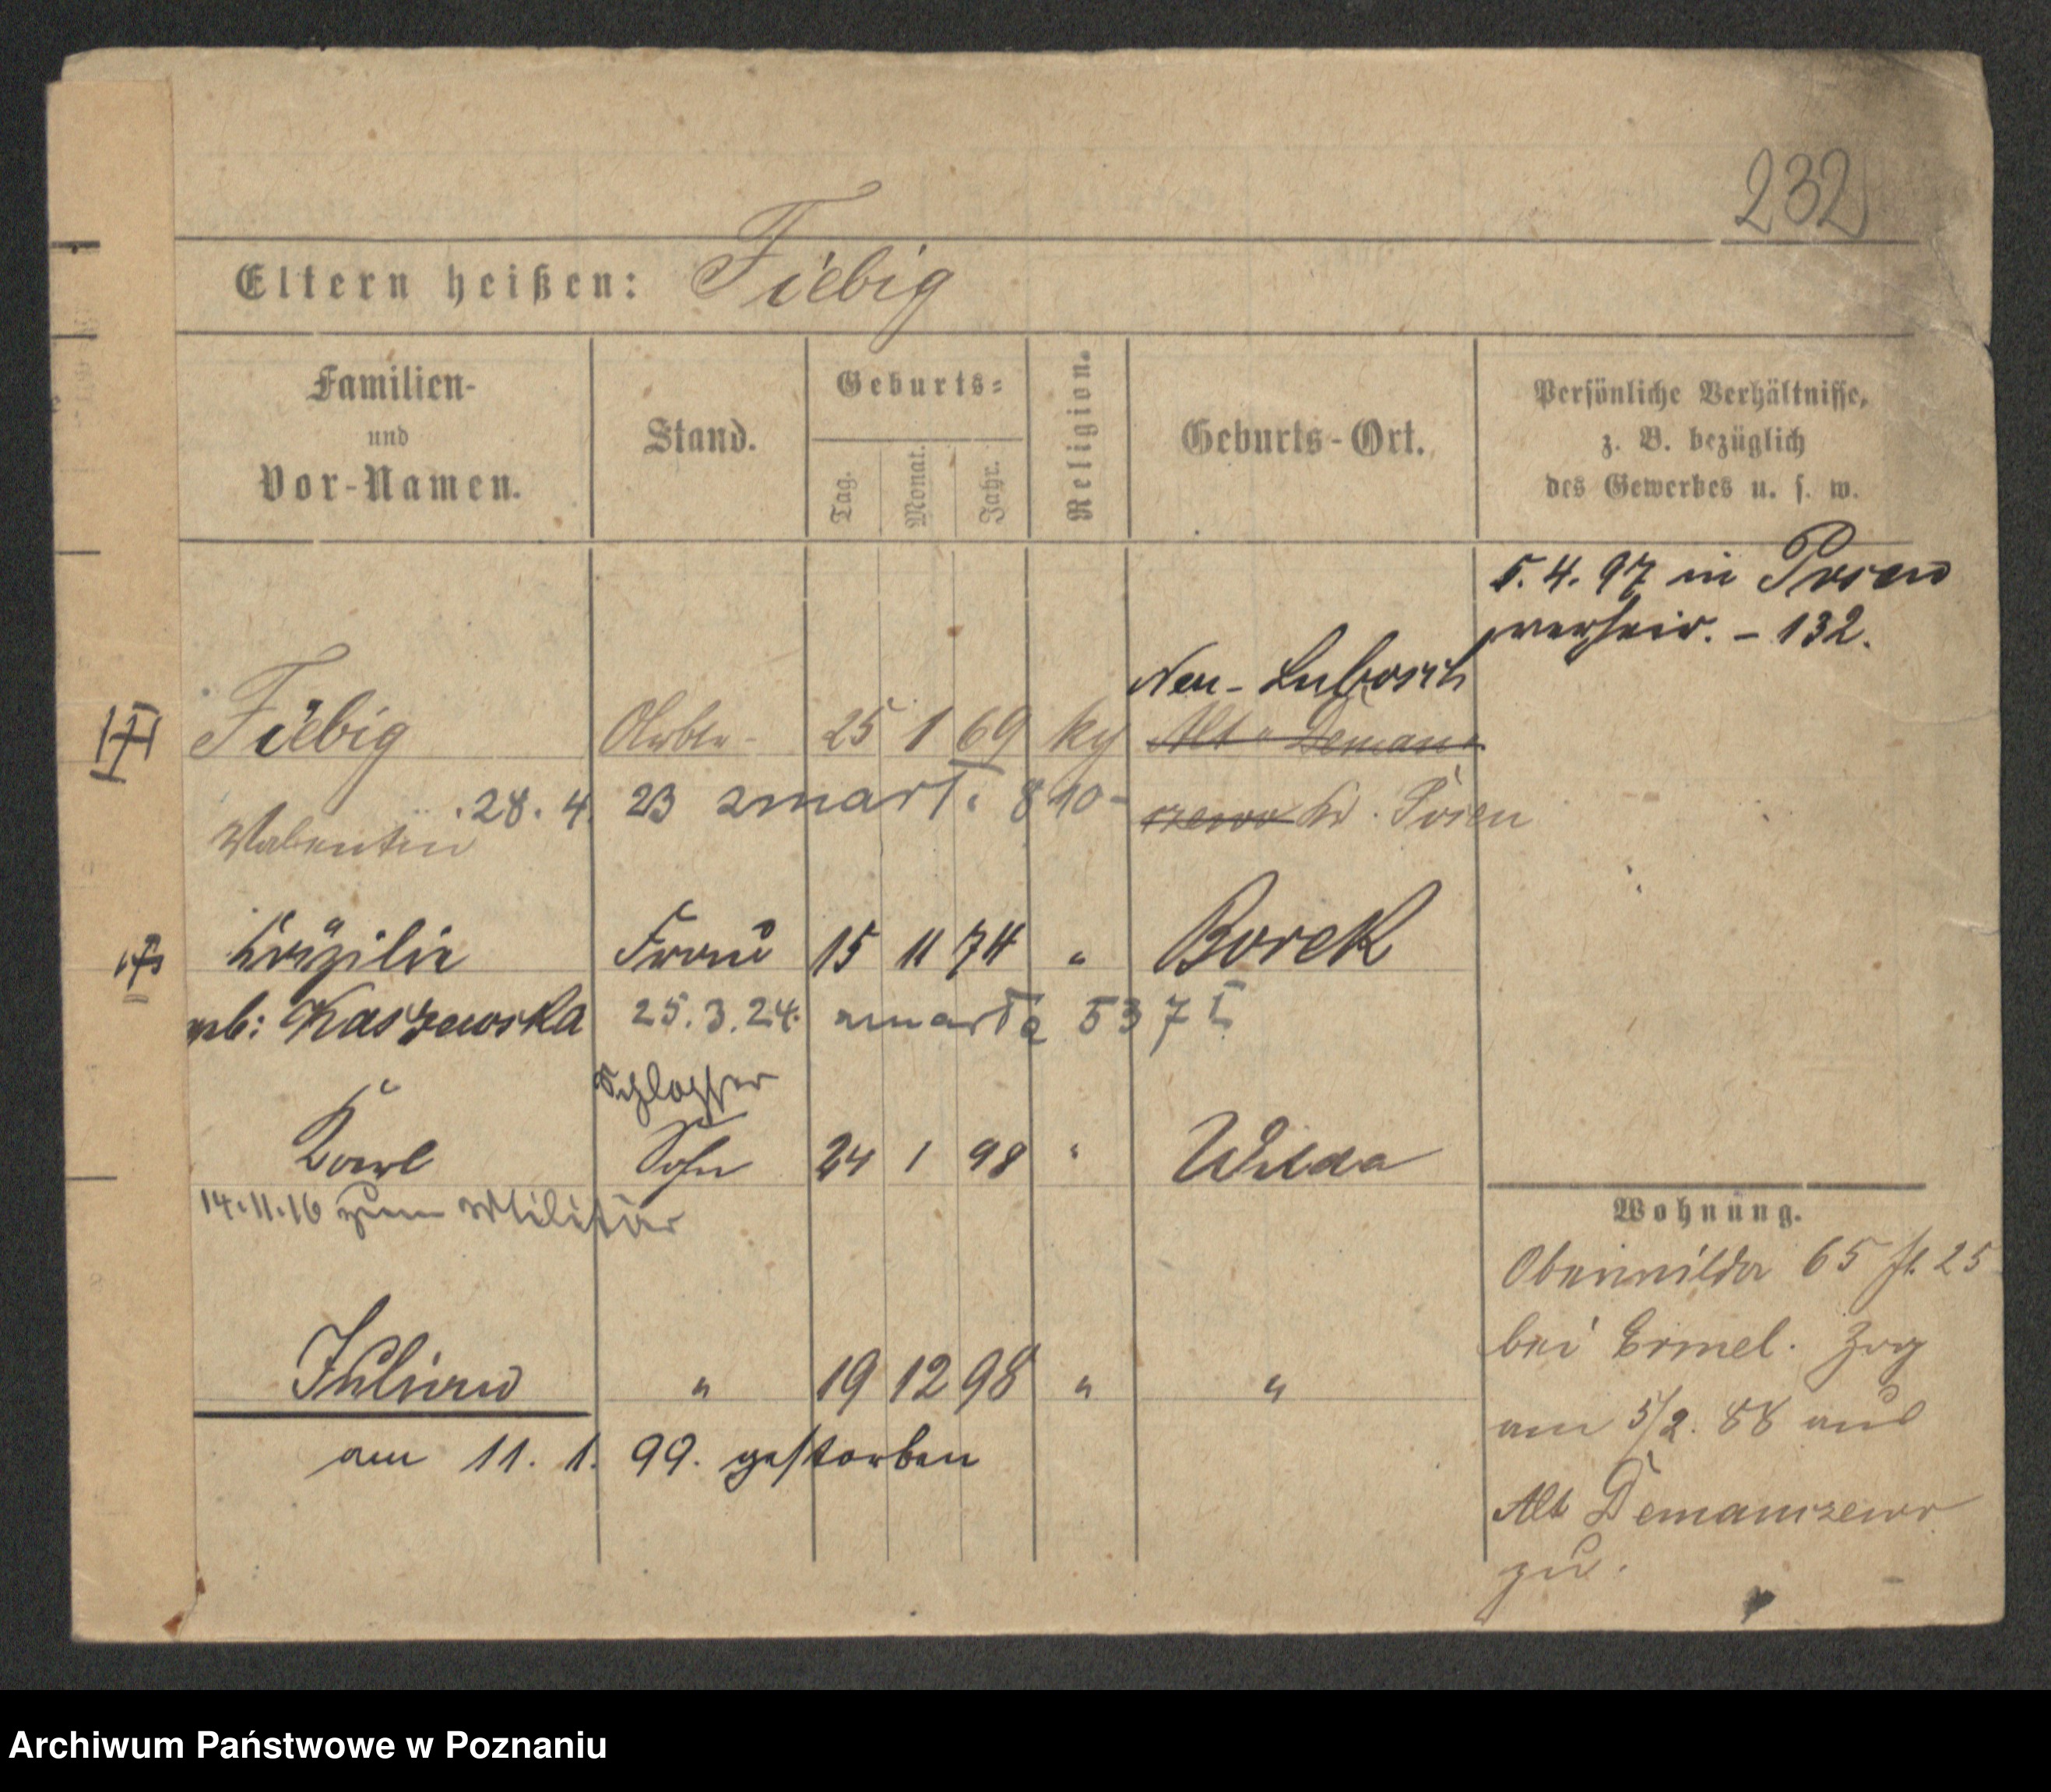 232
Eltern heißen: Fiebig
Familien-
und
Vor-Namen.
Stand.
Geburts=
Tag.
Monat.
Jahr.
Religion.
Geburts-Ort.
Persönliche Verhältnisse,
z. B. bezüglich
des Gewerbes u. s. w.
5. 4. 97 in Posen
verheir. - 132.
Neu-Lubosch
Fiebig 25 1 69 Alt Deman
Valentin 28. 4. 23 zmarł. 890 czewo Kr. Posen
Frau 15 11 74 " Borek
geb: Kaszewska 25.3.24. zmarła 537 I
Schlosser
Karl Sohn 24 1 98 " Wilda
14.11.16 zum Militär
Wohnung.
Oberwilda 65 fl. 25
bei Ermel. Zog
am 5/2. 88 aus
Alt Demanczewo
zu.
Julian " 19 12 98 " "
am 11. 1. 99. gestorben
Archiwum Państwowe w Poznaniu